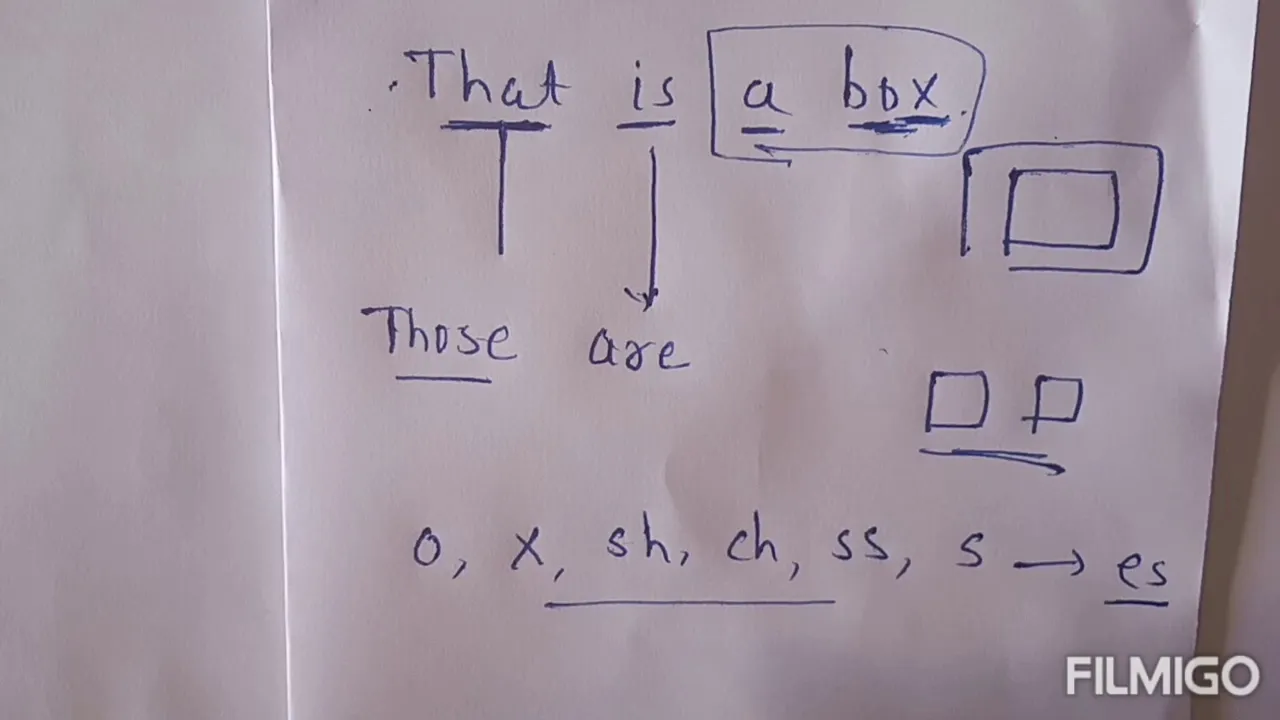 That is a box.
Those are
o, x, sh, ch, ss, s → es
FILMIGO